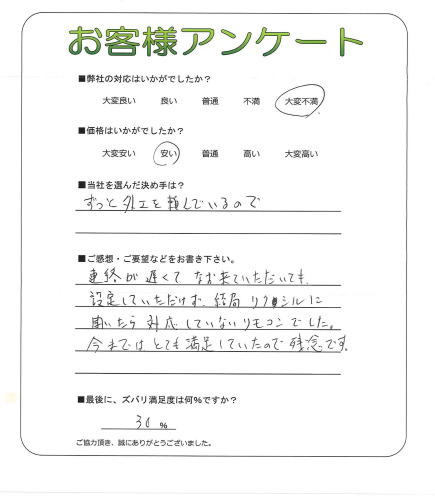 お客様アンケート
■弊社の対応はいかがでしたか？
大変良い　良い　普通　不満　大変不満
■価格はいかがでしたか？
大変安い　安い　普通　高い　大変高い
■当社を選んだ決め手は？
ずっと外工を頼んでいるので
■ご感想・ご要望などをお書き下さい。
連絡が遅くて なお来ていただいても、
設定していただけず、結局 リクシルに
聞いたら 対応していないリモコンでした。
今までは とても満足していたので 残念です。
■最後に、ズバリ満足度は何%ですか？
30 %
ご協力頂き、誠にありがとうございました。